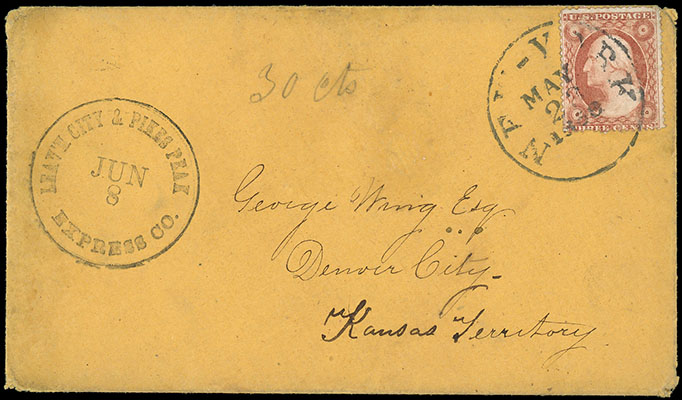 30 cts
U.S. POSTAGE
THREE CENTS
NEW-YORK
MAY
LEAV'H CITY & PIKES PEAK
JUN
8
EXPRESS CO.
George Wing Esq
Denver City
Kansas Territory